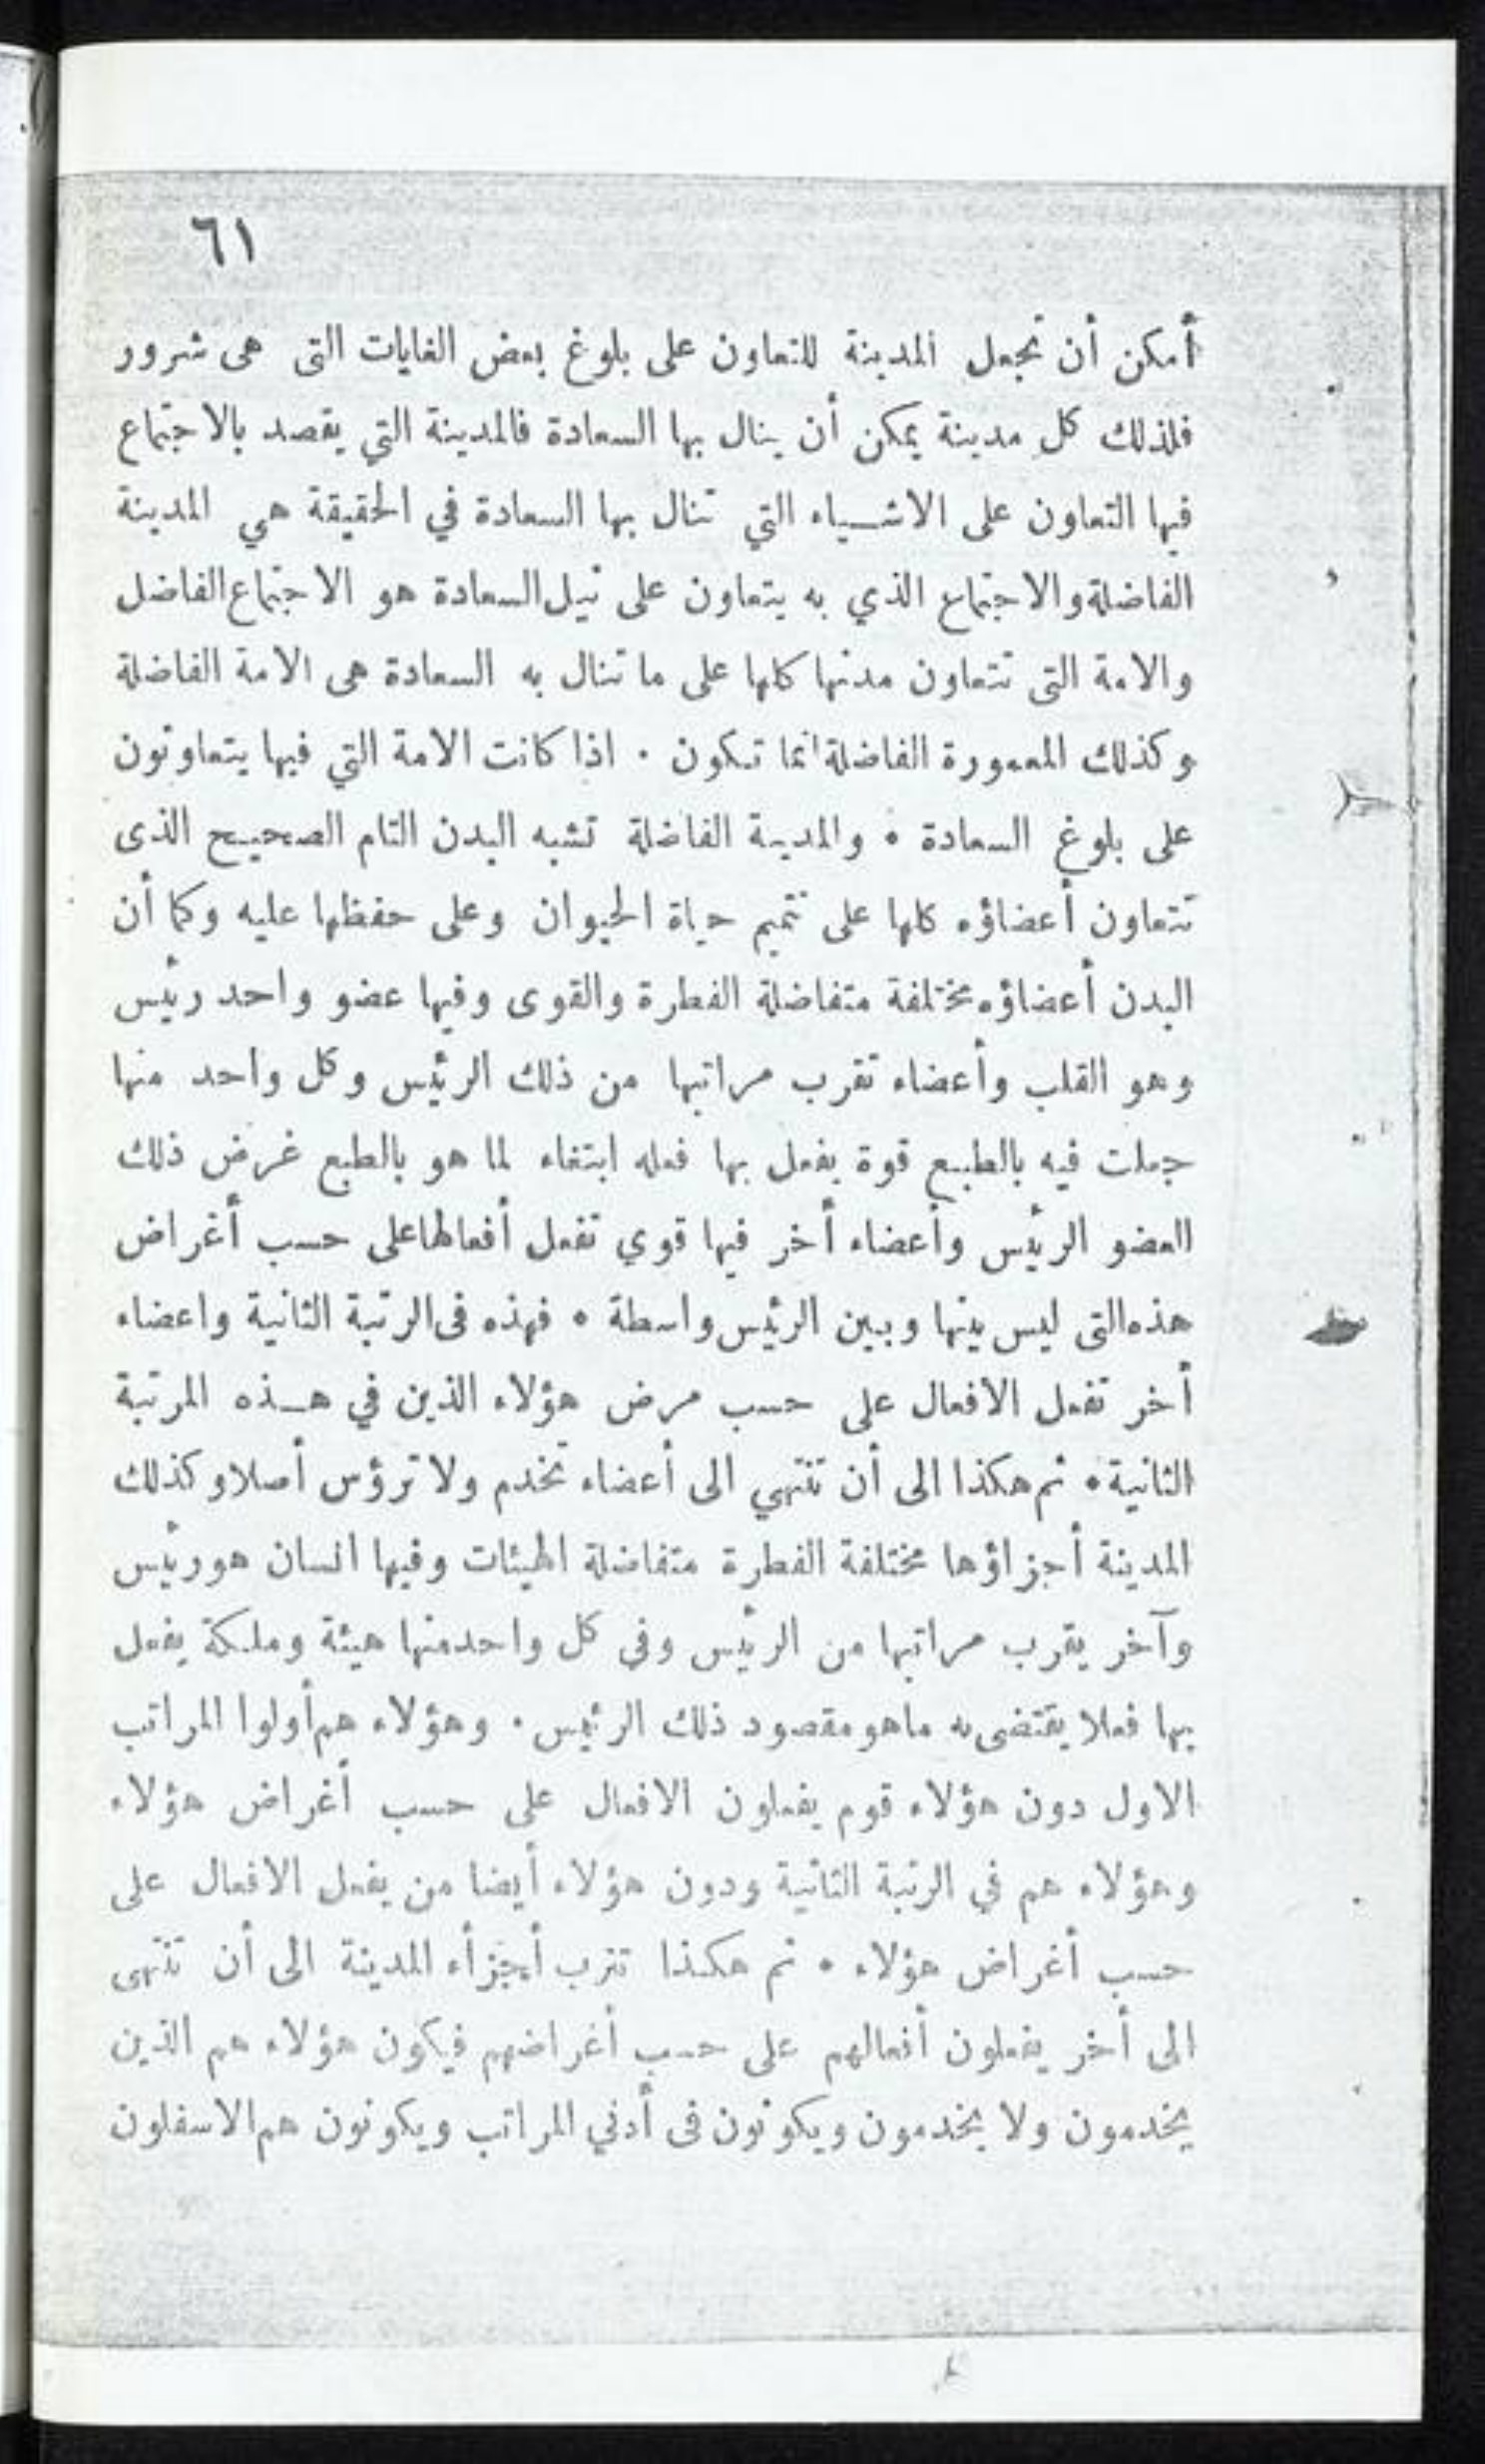 ٦١
أمكن أن تجعل المدينة للتعاون على بلوغ بعض الغايات التى هى شرور
فلذلك كل مدينة يمكن أن ينال بها السعادة فالمدينة التي يقصد بالاجتماع
فيها التعاون على الاشياء التي تنال بها السعادة في الحقيقة هي المدينة
الفاضلة والاجتماع الذي به يتعاون على نيل السعادة هو الاجتماع الفاضل
والامة التى تتعاون مدنها كلها على ما تنال به السعادة هى الامة الفاضلة
وكذلك المعمورة الفاضلة انما تكون ٠ اذا كانت الامة التي فيها يتعاونون
على بلوغ السعادة ٥ والمدينة الفاضلة تشبه البدن التام الصحيح الذى
تتعاون أعضاؤه كلها على تتميم حياة الحيوان وعلى حفظها عليه وكما أن
البدن أعضاؤه مختلفة متفاضلة الفطرة والقوى وفيها عضو واحد رئيس
وهو القلب وأعضاء تقرب مراتبها من ذلك الرئيس وكل واحد منها
جعلت فيه بالطبع قوة يفعل بها فعله ابتغاء لما هو بالطبع غرض ذلك
العضو الرئيس وأعضاء أخر فيها قوي تفعل أفعالها على حسب أغراض
هذه التى ليس بينها وبين الرئيس واسطة ٥ فهذه فى الرتبة الثانية واعضاء
أخر تفعل الافعال على حسب مرض هؤلاء الذين في هذه المرتبة
الثانية ٥ ثم هكذا الى أن تنتهي الى أعضاء تخدم ولا ترؤس أصلا وكذلك
المدينة أجزاؤها مختلفة الفطرة متفاضلة الهيئات وفيها انسان هو رئيس
وآخر يقرب مراتبها من الرئيس وفي كل واحد منها هيئة وملكة يفعل
بها فعلا يقتضى به ماهو مقصود ذلك الرئيس ٠ وهؤلاء هم أولوا المراتب
الاول دون هؤلاء قوم يفعلون الافعال على حسب أغراض هؤلاء
وهؤلاء هم في الرتبة الثانية ودون هؤلاء أيضا من يفعل الافعال على
حسب أغراض هؤلاء ٥ ثم هكذا تترب أجزأء المدينة الى أن تنتهى
الى أخر يفعلون أفعالهم على حسب أغراضهم فيكون هؤلاء هم الذين
يخدمون ولا يخدمون ويكونون فى أدني المراتب ويكونون هم الاسفلون